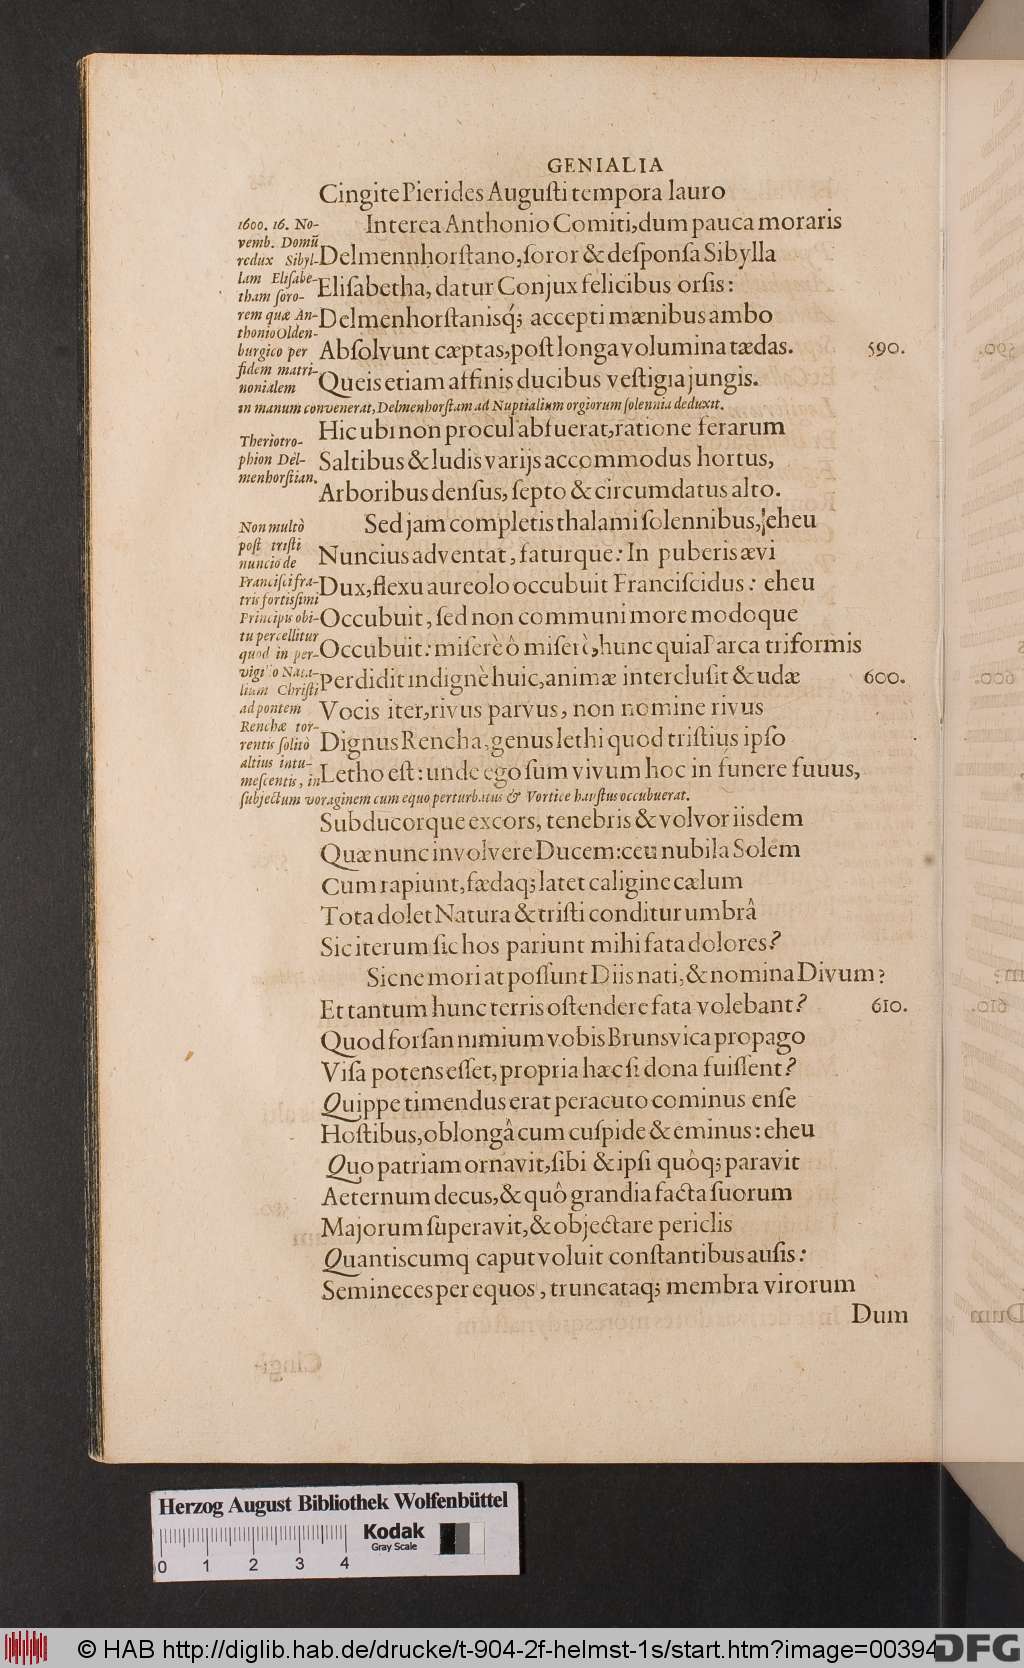 GENIALIA
Cingite Pierides Auguſti tempora lauro
1600. 16. No-
vemb. Domū
redux Sibyl-
lam Eliſabe-
tham ſoro-
rem quæ An-
thonio Olden-
burgico per
fidem matri-
nonialem
in manum convenerat, Delmenhorſtam ad Nuptialium orgiorum ſolennia deduxit.
Interea Anthonio Comiti, dum pauca moraris
Delmennhorſtano, ſoror & deſponſa Sibylla
Eliſabetha, datur Conjux felicibus orſis:
Delmenhorſtanisq́; accepti mænibus ambo
Abſolvunt cæptas, poſt longa volumina tædas. 590.
Queis etiam affinis ducibus veſtigia jungis.
Theriotro-
phion Del-
menhorſtian.
Hic ubi non procul abfuerat, ratione ferarum
Saltibus & ludis varijs accommodus hortus,
Arboribus denſus, ſepto & circumdatus alto.
Non multò
poſt triſti
nuncio de
Franciſci fra-
tris fortisſimi
Principis obi-
tu percellitur
quod in per-
vigilio Nata-
lium Chriſti
ad pontem
Renchæ tor-
rentis ſolitò
altius intu-
meſcentis, in
ſubjectum voraginem cum equo perturbatus & Vortice hauſtus occubuerat.
Sed jam completis thalami ſolennibus, eheu
Nuncius adventat, faturque: In puberis ævi
Dux, flexu aureolo occubuit Franciſcidus: eheu
Occubuit, ſed non communi more modoque
Occubuit: miſerè ô miſerè, hunc quia Parca triformis
Perdidit indignè huic, animæ intercluſit & udæ 600.
Vocis iter, rivus parvus, non nomine rivus
Dignus Rencha, genus lethi quod triſtius ipſo
Letho eſt: unde ego ſum vivum hoc in funere fuuus,
Subducorque excors, tenebris & volvor iisdem
Quæ nunc involvere Ducem: ceu nubila Solem
Cum rapiunt, fædaq; latet caligine cælum
Tota dolet Natura & triſti conditur umbrâ
Sic iterum ſic hos pariunt mihi fata dolores?
Sicne mori at poſſunt Diis nati, & nomina Divum?
Et tantum hunc terris oſtendere fata volebant? 610.
Quod forſan nimium vobis Brunsvica propago
Viſa potens eſſet, propria hæc ſi dona fuiſſent?
Quippe timendus erat peracuto cominus enſe
Hoſtibus, oblongâ cum cuſpide & eminus: eheu
Quo patriam ornavit, ſibi & ipſi quôq; paravit
Aeternum decus, & quô grandia facta ſuorum
Majorum ſuperavit, & objectare periclis
Quantiscumq caput voluit conſtantibus auſis:
Semineces per equos, truncataq; membra virorum
Dum
Herzog August Bibliothek Wolfenbüttel
Kodak
Gray Scale
0 1 2 3 4
© HAB http://diglib.hab.de/drucke/t-904-2f-helmst-1s/start.htm?image=00394
DFG